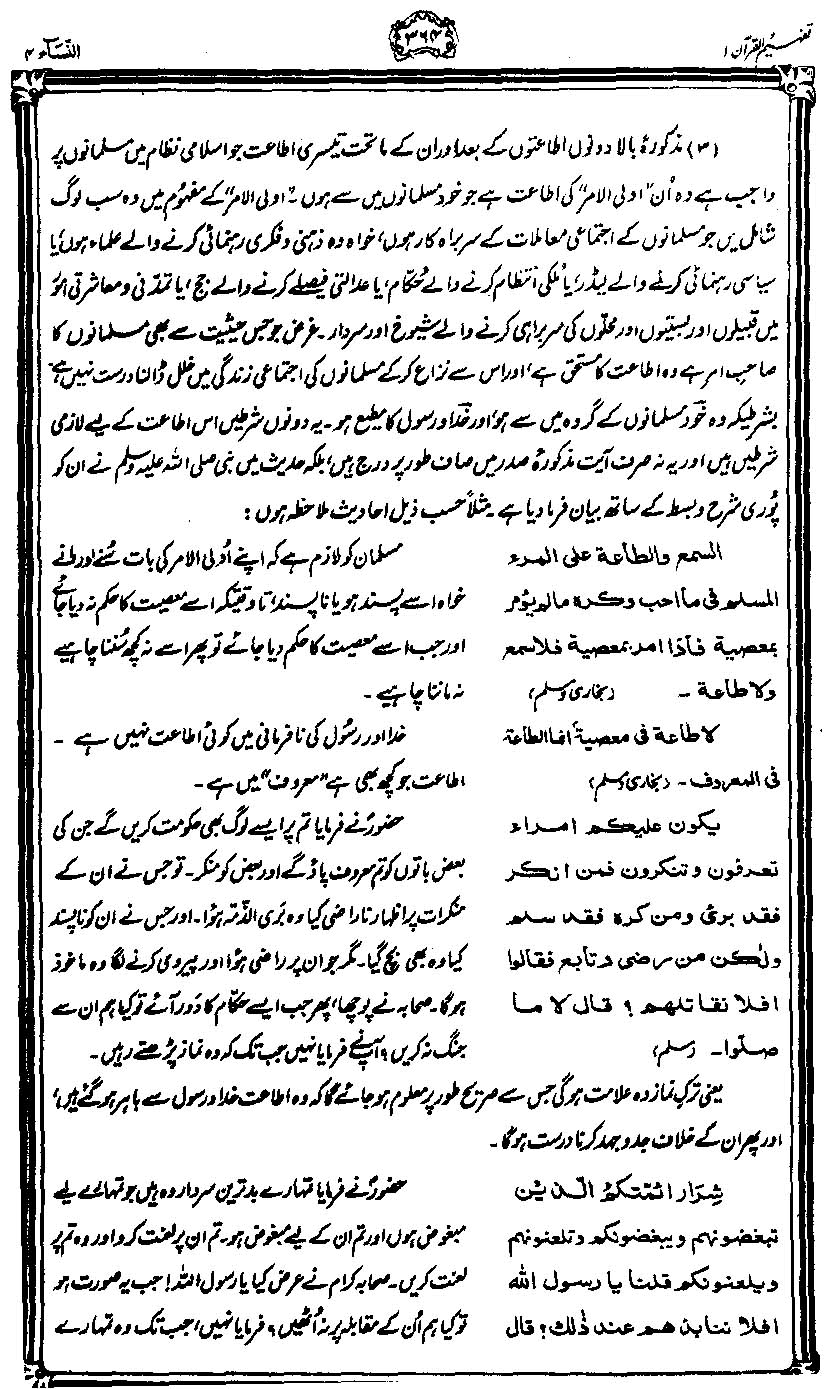 تفہیم القرآن ۱
۳۶۴
النّساء ۴
(۳) مذکورۂ بالا دونوں اطاعتوں کے بعد اور ان کے ماتحت تیسری اطاعت جو اسلامی نظام میں مسلمانوں پر
واجب ہے وہ اُن "اولی الامر" کی اطاعت ہے جو خود مسلمانوں میں سے ہوں۔ "اولی الامر" کے مفہوم میں وہ سب لوگ
شامل ہیں جو مسلمانوں کے اجتماعی معاملات کے سربراہ کار ہوں، خواہ وہ ذہنی و فکری رہنمائی کرنے والے علماء ہوں، یا
سیاسی رہنمائی کرنے والے لیڈر، یا ملکی انتظام کرنے والے حُکّام، یا عدالتی فیصلے کرنے والے جج، یا تمدّنی و معاشرتی امُور
میں قبیلوں اور بستیوں اور محلّوں کی سربراہی کرنے والے شیوخ اور سردار۔ غرض جو جس حیثیت سے بھی مسلمانوں کا
صاحبِ امر ہے وہ اطاعت کا مستحق ہے، اور اس سے نزاع کرکے مسلمانوں کی اجتماعی زندگی میں خلل ڈالنا درست نہیں ہے
بشرطیکہ وہ خود مسلمانوں کے گروہ میں سے ہو، اور خدا و رسول کا مطیع ہو۔ یہ دونوں شرطیں اس اطاعت کے لیے لازمی
شرطیں ہیں اور یہ نہ صرف آیت مذکورۂ صدر میں صاف طور پر درج ہیں، بلکہ حدیث میں نبی صلی اللہ علیہ وسلم نے ان کو
پُوری شرح و بسط کے ساتھ بیان فرما دیا ہے۔ مثلاً حسب ذیل احادیث ملاحظہ ہوں:
السمع والطاعة على المرء
المسلم فى ما احب وكره مالم يؤمر
بمعصية فاذا امر بمعصية فلا سمع
ولا طاعة۔ (بخاری و مسلم)
مسلمان کو لازم ہے کہ اپنے اُولی الامر کی بات سُنے اور مانے
خواہ اسے پسند ہو یا ناپسند، تاوقتیکہ اسے معصیت کا حکم نہ دیا جائے
اور جب اسے معصیت کا حکم دیا جائے تو پھر اسے نہ کچھ سُننا چاہیے
نہ ماننا چاہیے۔
لا طاعة فى معصية انما الطاعة
فى المعروف۔ (بخاری و مسلم)
خدا اور رسُول کی نافرمانی میں کوئی اطاعت نہیں ہے۔
اطاعت جو کچھ بھی ہے "معروف" میں ہے۔
يكون عليكم امراء
تعرفون وتنكرون فمن انكر
فقد برئ ومن كره فقد سلم
ولكن من رضى وتابع فقالوا
افلا نقاتلهم؟ قال لا ما
صلّوا۔ (مسلم)
حضورؐ نے فرمایا تم پر ایسے لوگ بھی حکومت کریں گے جن کی
بعض باتوں کو تم معروف پاؤ گے اور بعض کو منکر۔ تو جس نے ان کے
منکرات پر اظہار ناراضی کیا وہ بَری الذّمہ ہؤا۔ اور جس نے ان کو ناپسند
کیا وہ بھی بچ گیا۔ مگر جو ان پر راضی ہؤا اور پیروی کرنے لگا وہ ماخوذ
ہوگا۔ صحابہ نے پُوچھا، پھر جب ایسے حکّام کا دَور آئے تو کیا ہم ان سے
جنگ نہ کریں؟ آپؐ نے فرمایا نہیں جب تک کہ وہ نماز پڑھتے رہیں۔
یعنی ترکِ نماز وہ علامت ہوگی جس سے صریح طور پر معلوم ہو جائے گا کہ وہ اطاعتِ خدا و رسول سے باہر ہو گئے ہیں،
اور پھر ان کے خلاف جدوجہد کرنا درست ہوگا۔
شِرَار ائمتكمُ الّذين
تبغضونهم ويبغضونكم وتلعنونهم
ويلعنونكم قلنا يا رسول الله
افلا ننابذهم عند ذٰلك؟ قال
حضورؐ نے فرمایا تمہارے بدترین سردار وہ ہیں جو تمہارے لیے
مبغوض ہوں اور تم ان کے لیے مبغوض ہو۔ تم ان پر لعنت کرو اور وہ تم پر
لعنت کریں۔ صحابہ کرام نے عرض کیا یا رسول اللہ! جب یہ صورت ہو
تو کیا ہم اُن کے مقابلہ پر نہ اُٹھیں؟ فرمایا نہیں، جب تک وہ تمہارے